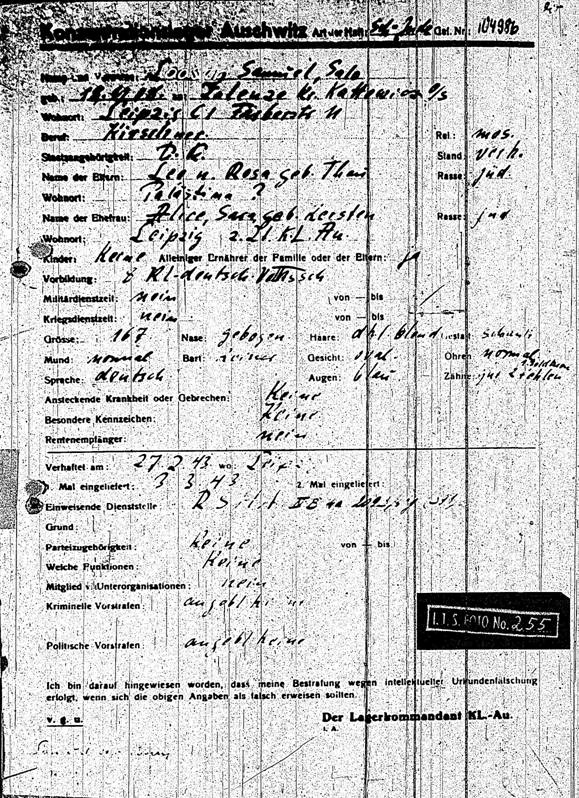 Konzentrationslager Auschwitz Art der Haft: Sch.-Jude Gef. Nr.: 104986
Name und Vorname: Samuel, Salo
geb.: Zalenze Kr. Kattowitz O/S
Wohnort: Leipzig C1
Beruf: Kürschner Rel.: mos.
Staatsangehörigkeit: D. R. Stand: verh.
Name der Eltern: Leo u. Rosa geb. Rasse: jüd.
Wohnort: Palästina ?
Name der Ehefrau: Alice, Sara geb. Kersten Rasse: jüd
Wohnort: Leipzig z. Zt. K.L. Au.
Kinder: Keine Alleiniger Ernährer der Familie oder der Eltern: ja
Vorbildung: 8 Kl. deutsch
Militärdienstzeit: nein von — bis
Kriegsdienstzeit: nein von — bis
Grösse: 167 Nase: gebogen Haare: dkl. blond Gestalt:
Mund: normal Bart: keiner Gesicht: oval Ohren: normal
Sprache: deutsch Augen: blau Zähne: 2 fehlen
Ansteckende Krankheit oder Gebrechen: Keine
Besondere Kennzeichen: Keine
Rentenempfänger: nein
Verhaftet am: 27.2.43 wo:
1. Mal eingeliefert: 3.3.43 2. Mal eingeliefert:
Einweisende Dienststelle:
Grund:
Parteizugehörigkeit: Keine von — bis
Welche Funktionen: Keine
Mitglied v. Unterorganisationen: nein
Kriminelle Vorstrafen: angebl. keine
I.T.S. FOTO No. 255
Politische Vorstrafen: angebl. keine
Ich bin darauf hingewiesen worden, dass meine Bestrafung wegen intellektueller Urkundenfälschung
erfolgt, wenn sich die obigen Angaben als falsch erweisen sollten.
v. g. u. Der Lagerkommandant KL.-Au.
i. A.